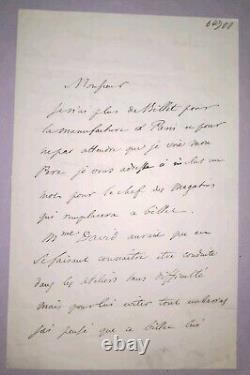 Monsieur
Je n'ai plus de Billet pour
la manufacture et Paris et pour
ne pas attendre que je voie mon
Père je vous adresse ci inclus un
mot pour le chef des magasins
qui remplacera ce billet.
Mme David aurait pu en
se faisant connaître être conduite
dans les ateliers sans difficulté
mais pour lui éviter tout embarras
j'ai pensé que ce billet lui